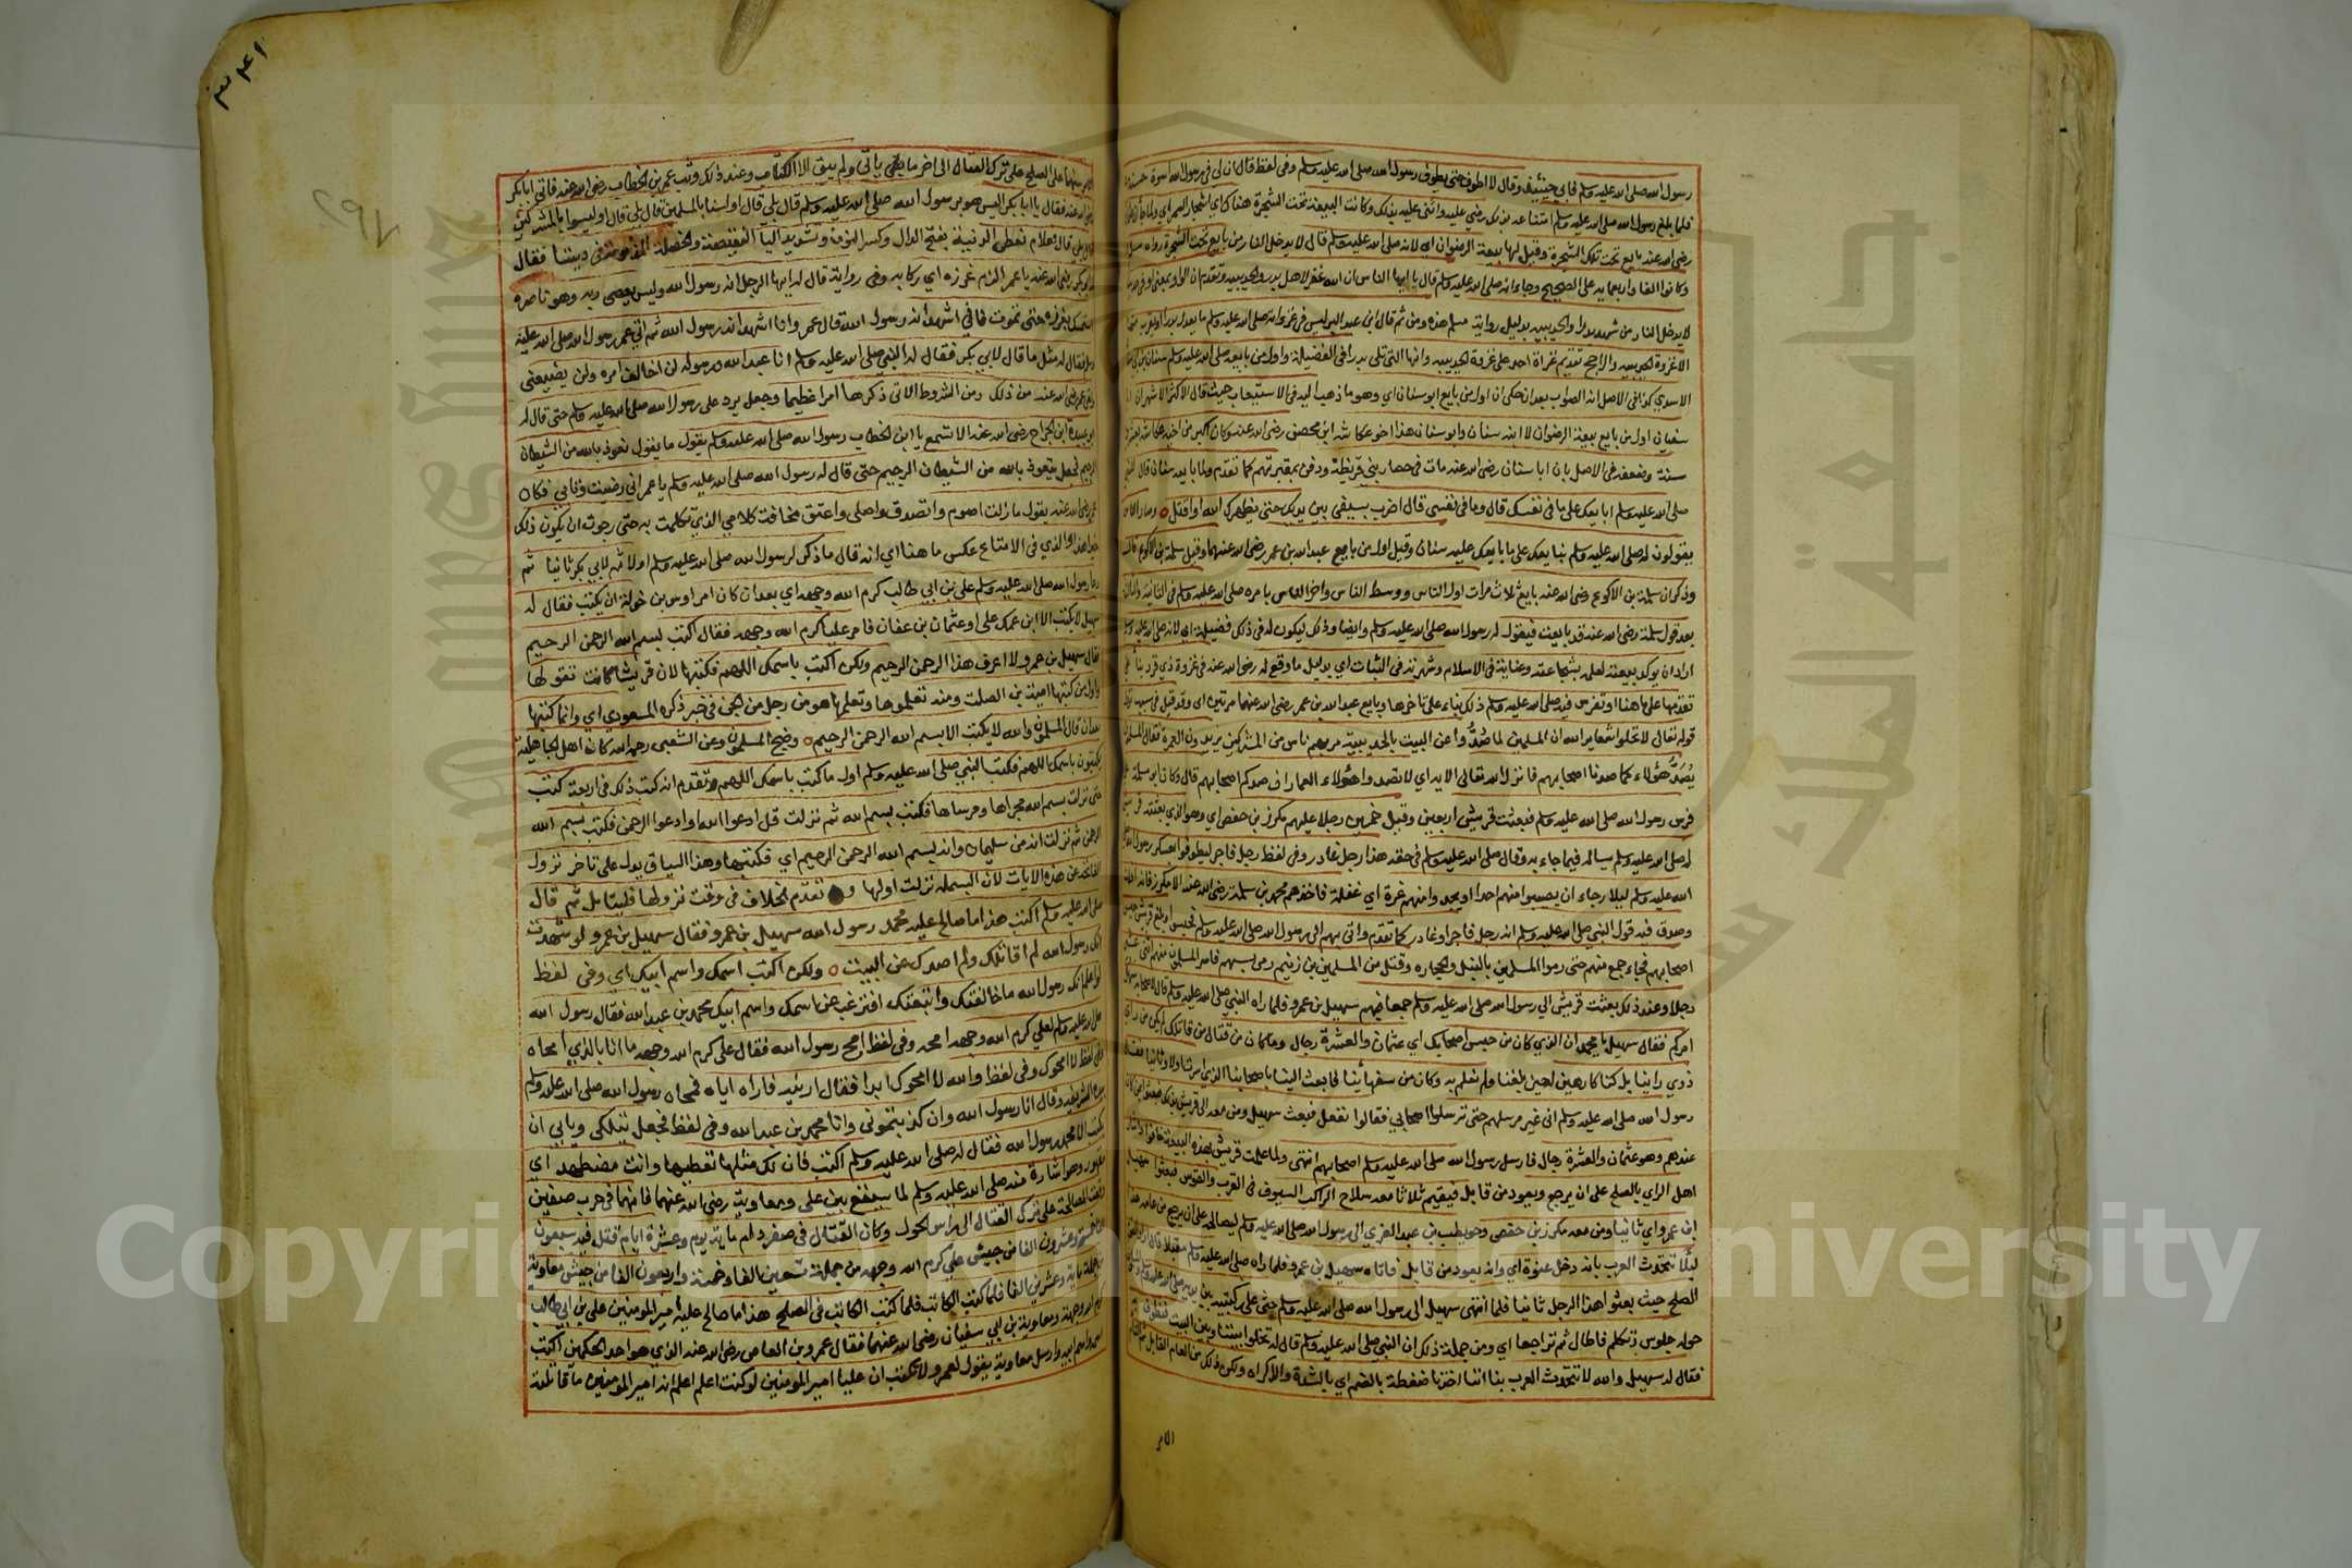 رسول الله صلى الله عليه وسلم فابى حينئيذ وقال لا اطوف حتى يطوف رسول الله صلى الله عليه وسلم وفي لفظ قال ان لي في رسول الله اسوة حسنة
فلما بلغ رسول الله صلى الله عليه وسلم امتناعه بذلك رضي عليه واثنى عليه بذلك وكانت البيعة تحت الشجرة هناك اي اشجار السمر
رضي الله عنه بايع تحت تلك الشجرة وقيل لها بيعة الرضوان اي لانه صلى الله عليه وسلم قال لا يدخل النار من بايع تحت الشجرة رواه مسلم
وكانوا الفا واربعمايه على الصحيح وجاء انه صلى الله عليه وسلم قال يا ايها الناس ان الله غفر لاهل بدر والحديبيه وتقدم ان الواو بمعنى او
لا يدخل النار من شهد بدرا والحديبيه بدليل رواية مسلم هذه ومن ثم قال ابن عبد البر ليس في غزواته صلى الله عليه وسلم ما يعدل بدرا
الا غزوة الحديبيه والراجح تقديم غزاة احد على غزوة الحديبيه وانها التي تلي بدرا في الفضيلة واول من بايعه صلى الله عليه وسلم سنان
الاسدي كذا في الاصل انه الصواب بعد ان حكى ان اول من بايع ابو سنان اي وهو ما ذهب اليه في الاستيعاب حيث قال الاكثر الاشهر ان
سفيان اول من بايع بيعة الرضوان لا ابنه سنان وابو سنان هذا اخو عكاشه ابن محصن رضي الله عنه وكان اكبر من اخيه عكاشه
سنة وضعفه في الاصل بان ابا سنان رضي الله عنه مات في حصار بني قريظة ودفن بمقبرتهم كما تقدم ولما بايعه سنان قال
صلى الله عليه وسلم ابايعك على ما في نفسك قال وما في نفسي قال اضرب بسيفي بين يديك حتى يظهرك الله او اقتل وصار الناس
يقولون له صلى الله عليه وسلم نبايعك على ما بايعك عليه سنان وقيل اول من بايع عبد الله بن عمر رضي الله عنهما وقيل سلمة بن الاكوع
وذكر ان سلمة بن الاكوع رضي الله عنه بايع ثلاث مرات اول الناس ووسط الناس واخر الناس بامره صلى الله عليه وسلم في الثانية
بعد قول سلمة رضي الله عنه قد بايعت فيقول له رسول الله صلى الله عليه وسلم وايضا وذلك ليكون له في ذلك فضيلة
اراد ان يوكد بيعته لعلمه بشجاعته وعنايته في الاسلام وشهرته في الثبات اي بدليل ما وقع له رضي الله عنه في غزوة ذي قرد
تقدمها على ما هنا او تفرس فيه صلى الله عليه وسلم ذلك بناء على تاخرها وبايع عبد الله بن عمر رضي الله عنهما مرتين اي وقد قيل في سبب
قوله تعالى لا تحلوا شعاير الله ان المسلمين لما صدوا عن البيت بالحديبيه مر بهم ناس من المشركين يريدون العمرة فقال المسلمون
نصد هؤلاء كما صدونا اصحابهم فانزل الله تعالى الايه اي لا تصدوا هؤلاء العمار ان صدوكم اصحابهم قال وكان
فرس رسول الله صلى الله عليه وسلم فبعثت قريش اربعين وقيل خمسين رجلا عليهم مكرز بن حفص اي وهو الذي بعثته
له صلى الله عليه وسلم يساله فيما جاء به وقال صلى الله عليه وسلم في حقه هذا رجل غادر وفي لفظ رجل فاجر ليطوفوا بعسكر رسول
الله عليه وسلم ليلا رجاء ان يصيبوا منهم احدا او يجدوا منهم غرة اي غفلة فاخذهم محمد بن سلمة رضي الله عنه الا مكرز فانه
وصدق فيه قول النبي صلى الله عليه وسلم انه رجل فاجر او غادر كما تقدم واتى بهم الى رسول الله صلى الله عليه وسلم فحبس
اصحابهم فجاء جمع منهم حتى رموا المسلمين بالنبل والحجاره وقتل من المسلمين بن زنيم رمي بسهم فاسر المسلمون منهم اثني عشر
رجلا وعند ذلك بعثت قريش الى رسول الله صلى الله عليه وسلم جمعا فيهم سهيل بن عمرو فلما راه النبي صلى الله عليه وسلم قال لاصحابه سهل
امركم فقال سهيل يا محمد ان الذي كان من حبس اصحابك اي عثمان والعشرة رجال وما كان من قتال من قاتلك لم يكن من راي
ذوي راينا بل كنا كارهين له حين بلغنا ولم نعلم به وكان من سفهائنا فابعث الينا باصحابنا الذين اسرت اولا وثانيا فقال
رسول الله صلى الله عليه وسلم اني غير مرسلهم حتى ترسلوا اصحابي فقالوا نفعل فبعث سهيل ومن معه الى قريش بذلك فبعثوا
عندهم وهو عثمان والعشرة رجال فارسل رسول الله صلى الله عليه وسلم اصحابهم انتهى ولما علمت قريش بهذه البيعة خافوا
اهل الراي بالصلح على ان يرجع ويعود من قابل فيقيم ثلاثا معه سلاح الراكب السيوف في القرب والقوس فبعثوا سهيل
ابن عمرو اي ثانيا ومن معه مكرز بن حفص وحويطب بن عبد العزى الى رسول الله صلى الله عليه وسلم ليصالحه على ان يرجع من عامه هذا
ليلا تتحدث العرب بانه دخل عنوة اي وانه يعود من قابل فاتاه سهيل بن عمرو فلما راه صلى الله عليه وسلم مقبلا قال
الصلح حيث بعثوا هذا الرجل ثانيا فلما انتهى سهيل الى رسول الله صلى الله عليه وسلم جثى على ركبتيه بين يديه صلى الله عليه وسلم
حوله جلوس وتكلم فاطال ثم تراجعا اي ومن جملة ذلك ان النبي صلى الله عليه وسلم قال له تخلوا بيننا وبين البيت فنطوف به
فقال له سهيل والله لا تتحدث العرب بنا اننا اخذنا ضغطة بالضم اي بالشدة والاكراه ولكن ذلك من العام القابل
الامر
٣٤١
٢٩٧
الامر بينهما على الصلح على ترك القتال الى اخر ما ياتي ولم يبق الا الكتاب وعند ذلك وثب عمر بن الخطاب رضي الله عنه فاتى ابا بكر
رضي الله عنه فقال يا ابا بكر اليس هو برسول الله صلى الله عليه وسلم قال بلى قال اولسنا بالمسلمين قال بلى قال اوليسوا بالمشركين
قال بلى قال فعلام نعطي الدنية بفتح الدال وكسر النون وتشديد اليا النقيصة والخصلة المذمومة في ديننا فقال
ابو بكر رضي الله عنه يا عمر الزم غرزه اي ركابه وفي رواية قال له ايها الرجل انه رسول الله وليس يعصي ربه وهو ناصره
استمسك بغرزه حتى تموت فاني اشهد انه رسول الله قال عمر وانا اشهد انه رسول الله ثم اتى عمر رسول الله صلى الله عليه
وسلم فقال له مثل ما قال لابي بكر فقال له النبي صلى الله عليه وسلم انا عبد الله ورسوله لن اخالف امره ولن يضيعني
ولقي عمر رضي الله عنه من ذلك ومن الشروط الاتي ذكرها امرا عظيما وجعل يرد على رسول الله صلى الله عليه وسلم حتى قال له
ابو عبيدة ابن الجراح رضي الله عنه الا تسمع يا ابن الخطاب رسول الله صلى الله عليه وسلم يقول ما يقول نعوذ بالله من الشيطان
الرجيم فجعل يتعوذ بالله من الشيطان الرجيم حتى قال له رسول الله صلى الله عليه وسلم يا عمر اني رضيت وتابى فكان
عمر رضي الله عنه يقول ما زلت اصوم واتصدق واصلي واعتق مخافة كلامي الذي تكلمت به حتى رجوت ان يكون ذلك
خيرا هذا والذي في الامتاع عكس ما هنا اي انه قال ما ذكر لرسول الله صلى الله عليه وسلم اولا ثم لابي بكر ثانيا ثم
دعا رسول الله صلى الله عليه وسلم علي بن ابي طالب كرم الله وجهه اي بعد ان كان امر اوس بن خولة ان يكتب فقال له
سهيل لا يكتب الا ابن عمك علي او عثمان بن عفان فامر عليا كرم الله وجهه فقال اكتب بسم الله الرحمن الرحيم
فقال سهيل بن عمرو لا اعرف هذا الرحمن الرحيم ولكن اكتب باسمك اللهم فكتبها لان قريشا كانت تقولها
واول من كتبها امية بن الصلت ومنه تعلموها وتعلمها هو من رجل من الجن في خبر ذكره المسعودي اي وانما كتبها
بعد ان قال المسلمون والله لا يكتب الا بسم الله الرحمن الرحيم وضج المسلمون وعن الشعبي رحمه الله كان اهل الجاهلية
يكتبون باسمك اللهم فكتب النبي صلى الله عليه وسلم اول ما كتب باسمك اللهم وتقدم انه كتب ذلك في اربعة كتب
حتى نزلت بسم الله مجراها ومرساها فكتب بسم الله ثم نزلت قل ادعوا الله او ادعوا الرحمن فكتب بسم الله
الرحمن ثم نزلت انه من سليمان وانه بسم الله الرحمن الرحيم اي فكتبها وهذا السياق يدل على تاخر نزول
الفاتحة عن هذه الايات لان البسملة نزلت اولها و تقدم الخلاف في وقت نزولها فليتامل ثم قال
صلى الله عليه وسلم اكتب هذا ما صالح عليه محمد رسول الله سهيل بن عمرو فقال سهيل بن عمرو لو شهدت
انك رسول الله لم اقاتلك ولم اصدك عن البيت ولكن اكتب اسمك واسم ابيك اي وفي لفظ
لو اعلم انك رسول الله ما خالفتك واتبعتك افترغب عن اسمك واسم ابيك محمد بن عبد الله فقال رسول الله
صلى الله عليه وسلم لعلي كرم الله وجهه امحه وفي لفظ امح رسول الله فقال علي كرم الله وجهه ما انا بالذي امحاه
وفي لفظ لا امحوك وفي لفظ والله لا امحوك ابدا فقال ارنيه فاراه اياه فمحاه رسول الله صلى الله عليه وسلم
بيده الشريفه وقال انا رسول الله وان كذبتموني وانا محمد بن عبد الله وفي لفظ فجعل يتلكى ويابى ان
يكتب الا محمد رسول الله فقال له صلى الله عليه وسلم اكتب فان لك مثلها تعطيها وانت مضطهد اي
مقهور وهو اشارة منه صلى الله عليه وسلم لما سيقع بين علي ومعاوية رضي الله عنهما فانهما في حرب صفين
وقعت المصالحة على ترك القتال الى راس الحول وكان القتال في صفر دام ماية يوم وعشرة ايام قتل فيه سبعون
الفا خمسة وعشرون الفا من جيش علي كرم الله وجهه من جملة تسعين الفا وخمسة واربعون الفا من جيش معاوية
من جملة ماية وعشرين الفا فلما كتب الكاتب في الصلح هذا ما صالح عليه امير المومنين علي بن ابي طالب
كرم الله وجهه ومعاوية بن ابي سفيان رضي الله عنهما فقال عمرو بن العاص رضي الله عنه الذي هو احد الحكمين اكتب
اسمه واسم ابيه وارسل معاوية يقول لعمرو لا تكتب ان عليا امير المومنين لو كنت اعلم اعلم انه امير المومنين ما قاتلته
جامعة الملك سعود
Copyright © King Saud University